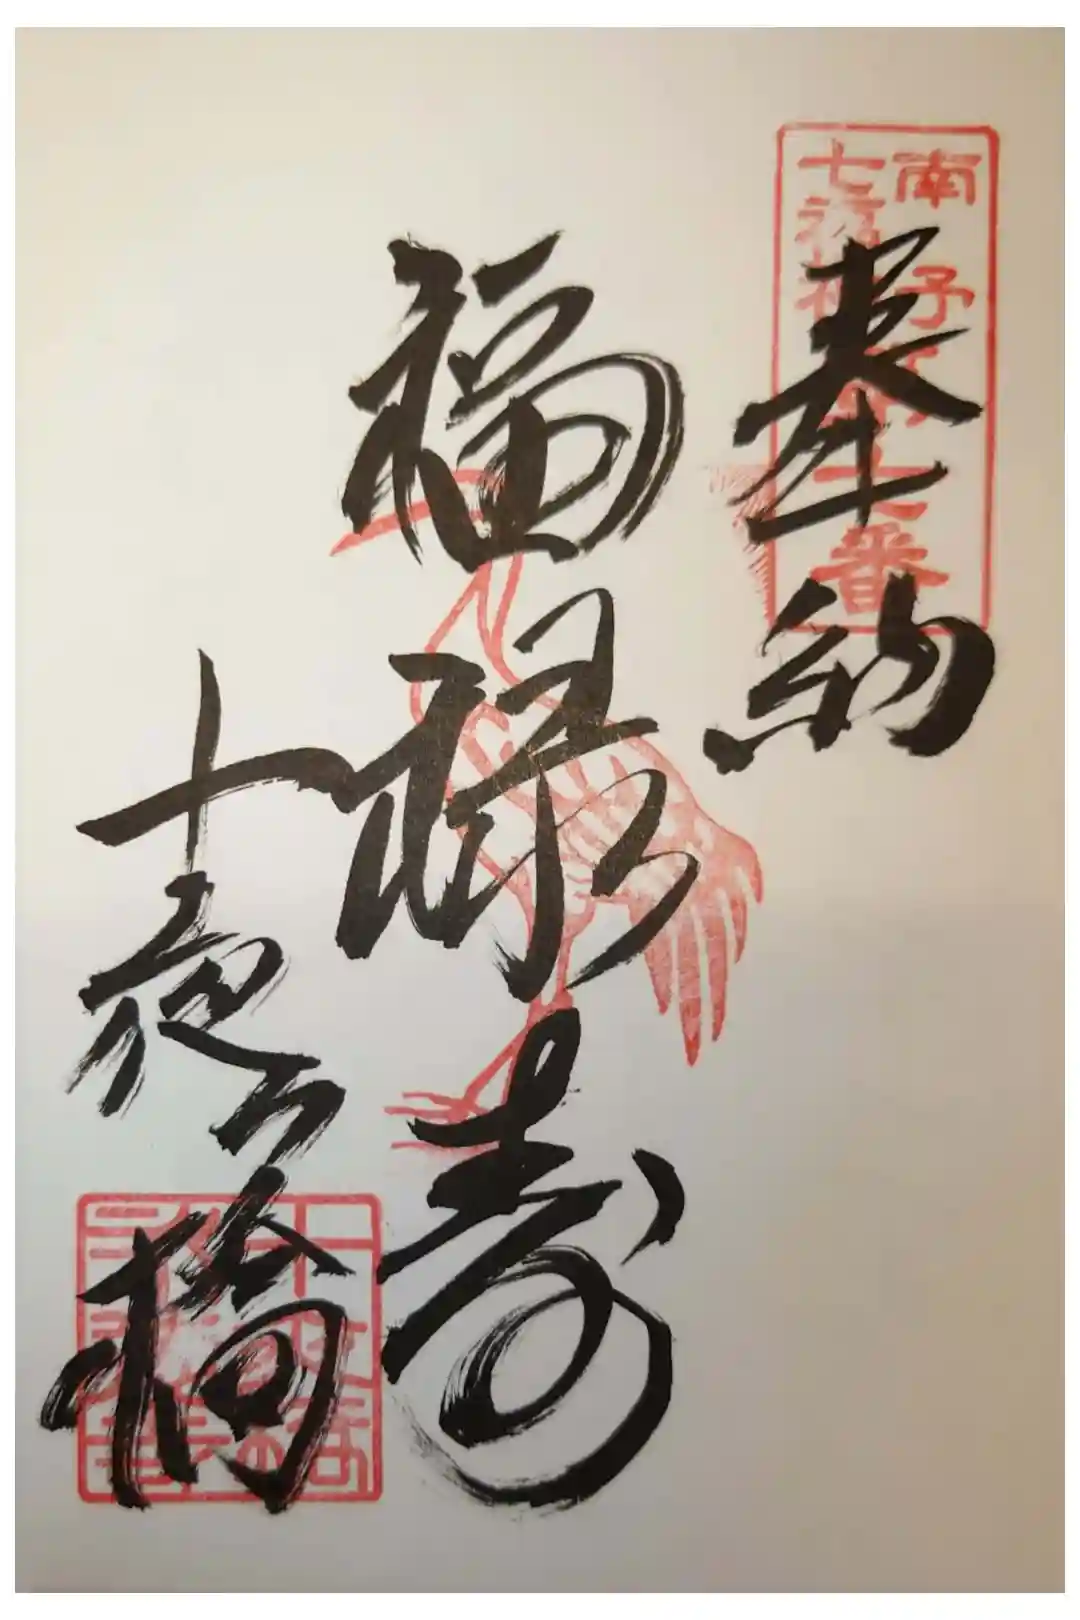 南予
七福神
番
奉納
福禄寿
十夜ヶ橋